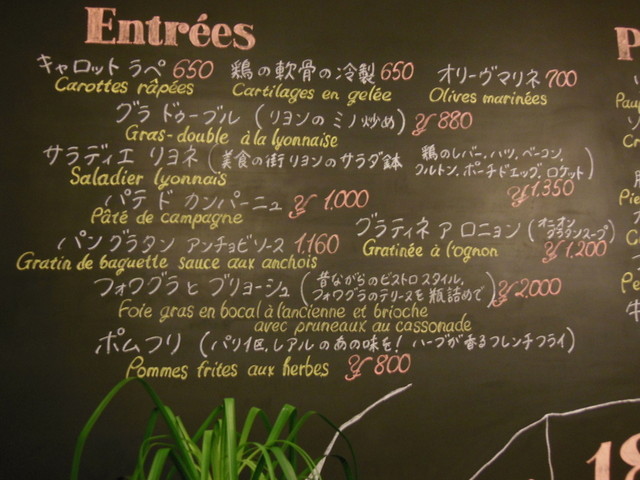 Entrées
キャロット ラペ 650 鶏の軟骨の冷製 650 オリーヴマリネ 700
Carottes râpées Cartilages en gelée Olives marinées
グラ ドゥーブル (リヨンの ミノ炒め) ¥880
Gras-double à la lyonnaise
サラディエ リヨネ (美食の街リヨンのサラダ鉢 鶏のレバー、ハツ、ベーコン、
クルトン、ポーチドエッグ、ロケット)
Saladier lyonnais ¥1.350
パテ ド カンパーニュ ¥1.000
Pâté de campagne
グラティネ ア ロニョン (オニオン
グラタンスープ)
Gratinée à l'ognon ¥1,200
パン グラタン アンチョビソース 1,160
Gratin de baguette sauce aux anchois
フォワグラと ブリョーシュ (昔ながらのビストロスタイル、
フォワグラのテリースを瓶詰めで) ¥2,000
Foie gras en bocal à l'ancienne et brioche
avec pruneaux au cassonade
ポムフリ (パリ1区、レアルのあの味を! ハーブが香るフレンチフライ)
Pommes frites aux herbes ¥800
P
Paup
Cr
Pie
C
Pe
牛
18